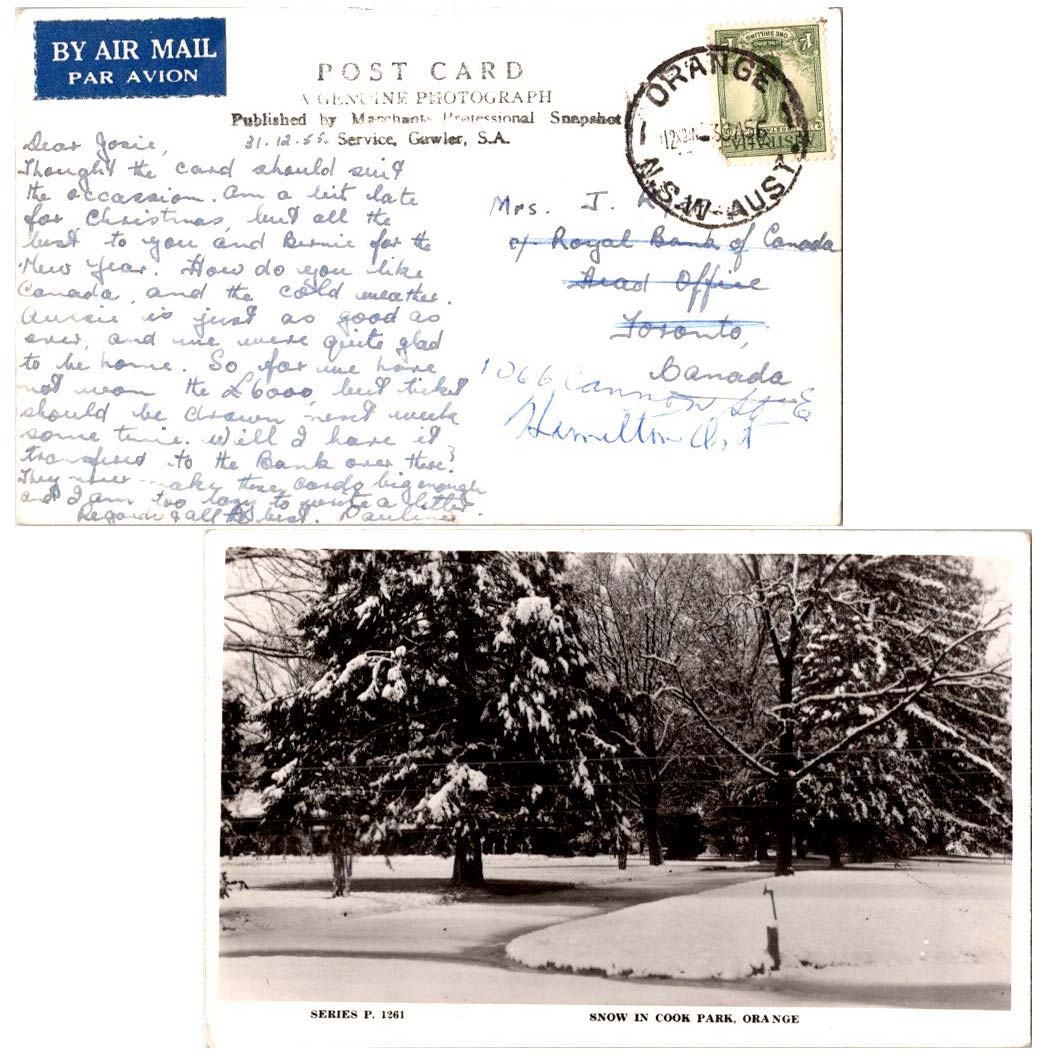 BY AIR MAIL
PAR AVION
POST CARD
A GENUINE PHOTOGRAPH
Published by Merchants Professional Snapshot
Service, Gawler, S.A.
31.12.55.
Dear Josie,
Thought the card should suit
the occassion. Am a bit late
for Christmas, but all the
best to you and Bernie for the
New Year. How do you like
Canada, and the cold weather.
Aussie is just as good as
ever, and we were quite glad
to be home. So far we have
not won the £6000, but ticket
should be drawn next week
some time. Will I have it
transfered to the Bank over there?
They never make these cards big enough
and I am too lazy to write a letter.
Regards & all the best. Pauline
ONE SHILLING
AUSTRALIA
ORANGE
N.S.W-AUST
Mrs. J.
c/- Royal Bank of Canada
Head Office
Toronto,
Canada
1066 Cannon St E
Hamilton Ont
SERIES P. 1261
SNOW IN COOK PARK, ORANGE